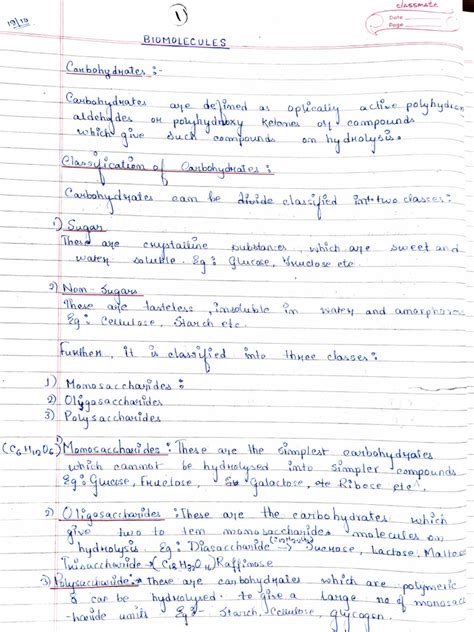 classmate
Date
Page
19/10
1
BIOMOLECULES
Carbohydrates :-
Carbohydrates are defined as optically active polyhydroxy
aldehydes or polyhydroxy ketones or compounds
which give such compounds on hydrolysis.
Classification of Carbohydrates :
Carbohydrates can be divide classified into two classes:
1) Sugar
These are crystalline substances, which are sweet and
water soluble. Eg: Glucose, Fructose etc.
2) Non-Sugars
These are tasteless, insoluble in water and amorphous
Eg: Cellulose, Starch etc.
Further, it is classified into three classes:
1) Monosaccharides :
2) Oligosaccharides
3) Polysaccharides
(C6H12O6) 1) Monosaccharides : These are the simplest carbohydrates
which cannot be hydrolysed into simpler compounds
Eg: Glucose, Fructose, Galactose, etc Ribose etc.
2) Oligosaccharides : These are the carbohydrates which
give two to ten monosaccharides molecules on
hydrolysis. Eg: Disaccharide → Sucrose, Lactose, Maltose
Trisaccharide → Raffinose
3) Polysaccharide : These are carbohydrates which are polymeric
& can be hydrolysed to give a large no of monosacc
-haride units Eg: Starch, Cellulose, glycogen.